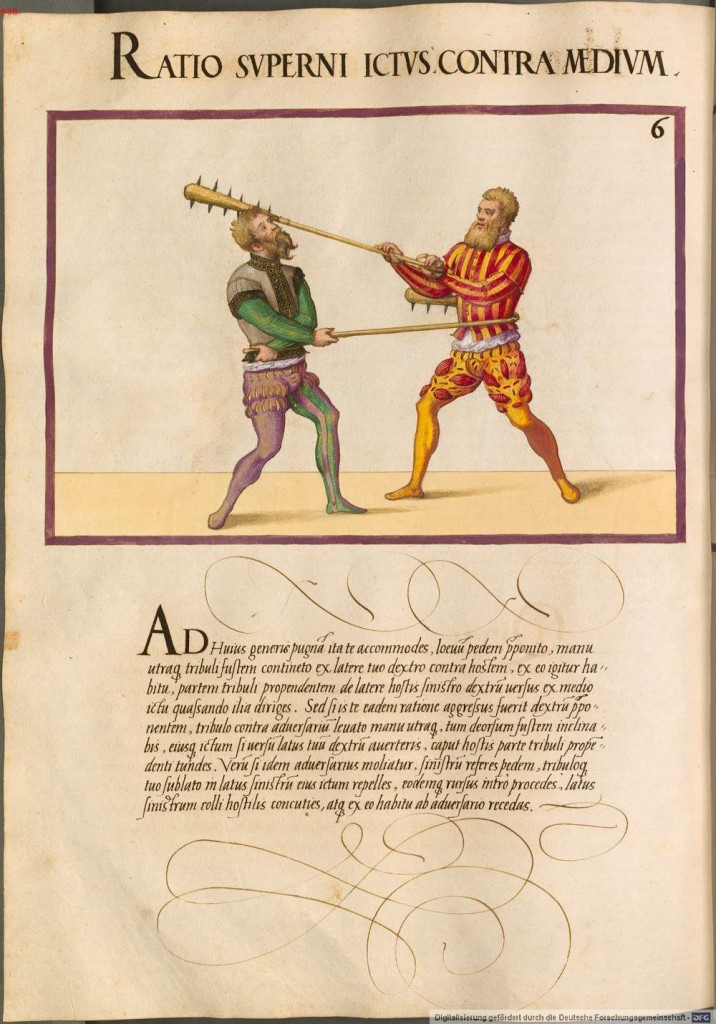 RATIO SVPERNI ICTVS CONTRA MEDIVM.
6
AD Huius generis pugnā ita te accommodes, loeuū pedem p̄ponito, manu
utraq tribuli fustem contineto ex latere tuo dextro contra hostem, ex eo igitur ha-
bitu, partem tribuli propendentem de latere hostis sinistro dextrū uersus ex medio
ictu quassando ilia diriges. Sed si is te eadem ratione aggresus fuerit dextrū p̄po-
nentem, tribulo contra aduersariū leuato manu utraq, tum deorsum fustem inclina-
bis, eiusq ictum si uersū latus tuū dextrū auerteris, caput hostis parte tribuli prope-
denti tundes. Verū si idem aduersarius moliatur, sinistrū referes pedem, tribuloq
tuo sublato in latus sinistrū eius ictum repelles, eodemq rursus intrò procedes, latus
sinistrum colli hostilis concuties, atq ex eo habitu ab aduersario recedas.
Digitalisierung gefördert durch die Deutsche Forschungsgemeinschaft - DFG